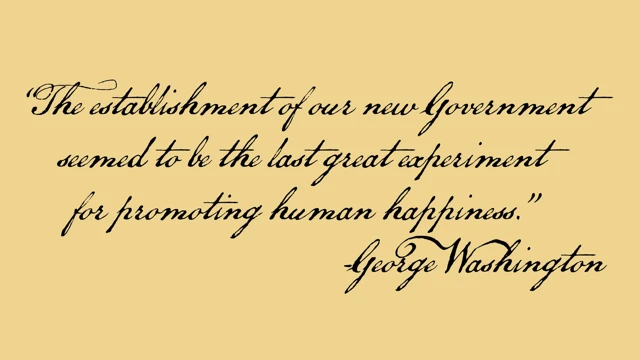 “The establishment of our new Government
seemed to be the last great experiment
for promoting human happiness.”
-George Washington